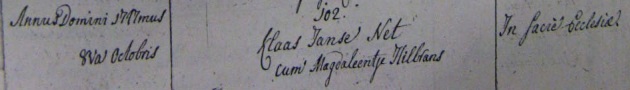 Annus Domini 1747mus
8va Octobris
102.
Claas Janse Net
cum Magdaleentje Hilbrans
In facie Ecclesiæ